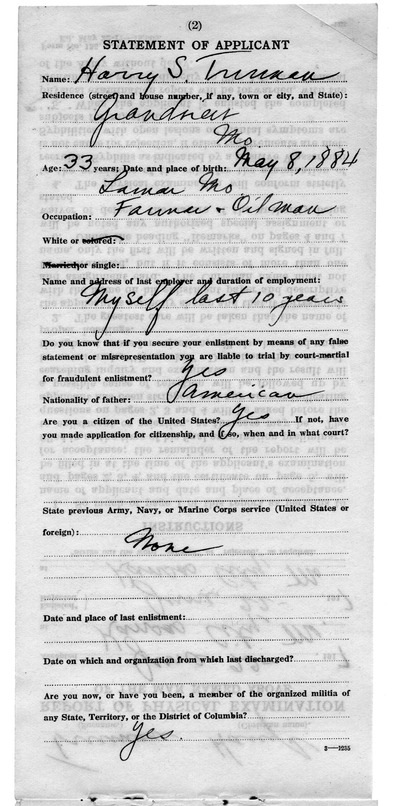 (2)
STATEMENT OF APPLICANT
Name: Harry S. Truman
Residence (street and house number, if any, town or city, and State):
Grandview
Mo.
Age: 33 years; Date and place of birth: May 8, 1884
Lamar Mo
Occupation: Farmer + Oil man
White or colored:
Married or single:
Name and address of last employer and duration of employment:
Myself last 10 years
Do you know that if you secure your enlistment by means of any false
statement or misrepresentation you are liable to trial by court-martial
for fraudulent enlistment? Yes
Nationality of father: American
Are you a citizen of the United States? Yes If not, have
you made application for citizenship, and if so, when and in what court?
State previous Army, Navy, or Marine Corps service (United States or
foreign):
None
Date and place of last enlistment:
Date on which and organization from which last discharged?
Are you now, or have you been, a member of the organized militia of
any State, Territory, or the District of Columbia?
Yes.
3—1235